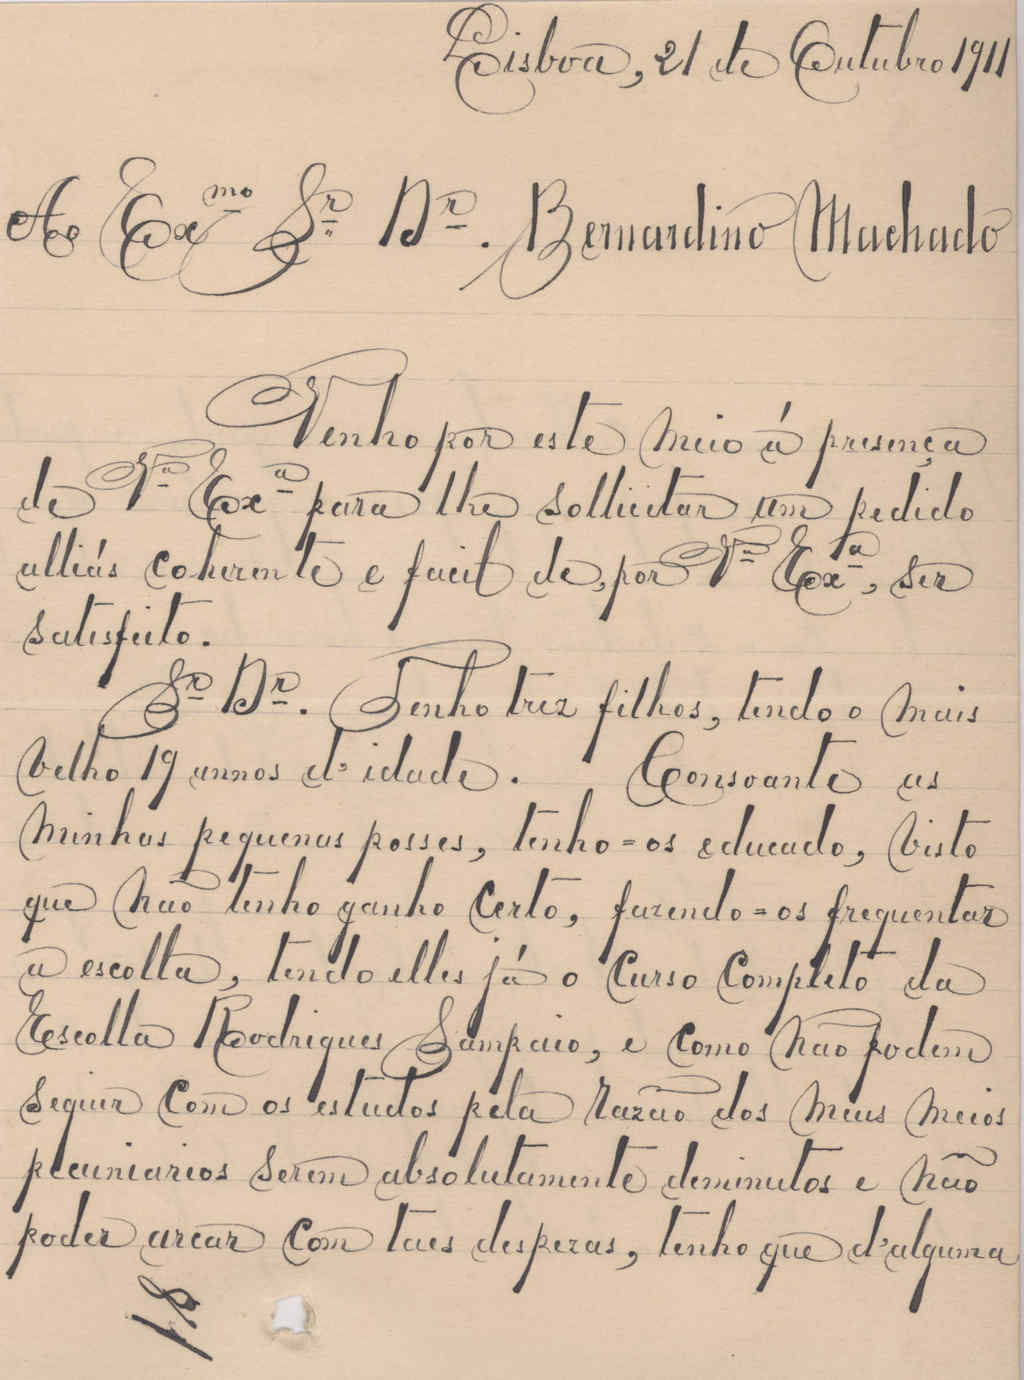 Lisboa, 21 de Outubro 1911
Ao Exmo Sr. Dr. Bernardino Machado
Venho por este meio á presença
de Va Exa para lhe sollicitar um pedido
alliás coherente e facil de, por Va Exa, ser
satisfeito.
Sr Dr. Tenho trez filhos, tendo o mais
velho 19 annos d'idade. Consoante as
minhas pequenas posses, tenho=os educado, visto
que não tenho ganho certo, fazendo=os frequentar
a escolla, tendo elles já o curso completo da
Escolla Rodrigues Sampaio, e como não podem
seguir com os estudos pela razão dos meus meios
pecuniarios serem absolutamente deminutos e não
poder arcar com taes despezas, tenho que d'alguma